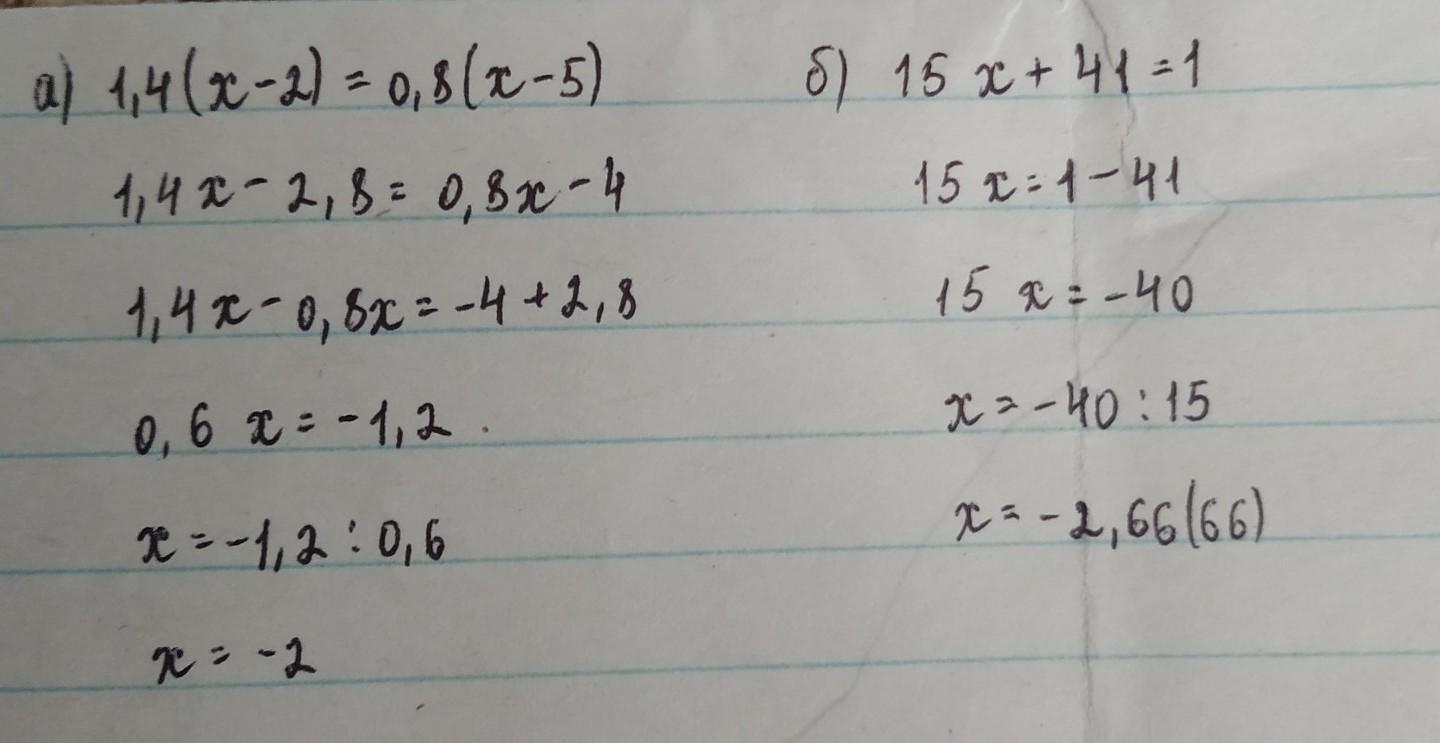 а) 1,4(x-2) = 0,8(x-5)
1,4x - 2,8 = 0,8x - 4
1,4x - 0,8x = -4 + 2,8
0,6 x = -1,2
x = -1,2 : 0,6
x = -2
б) 15 x + 41 = 1
15 x = 1 - 41
15 x = -40
x = -40 : 15
x = -2,66(66)